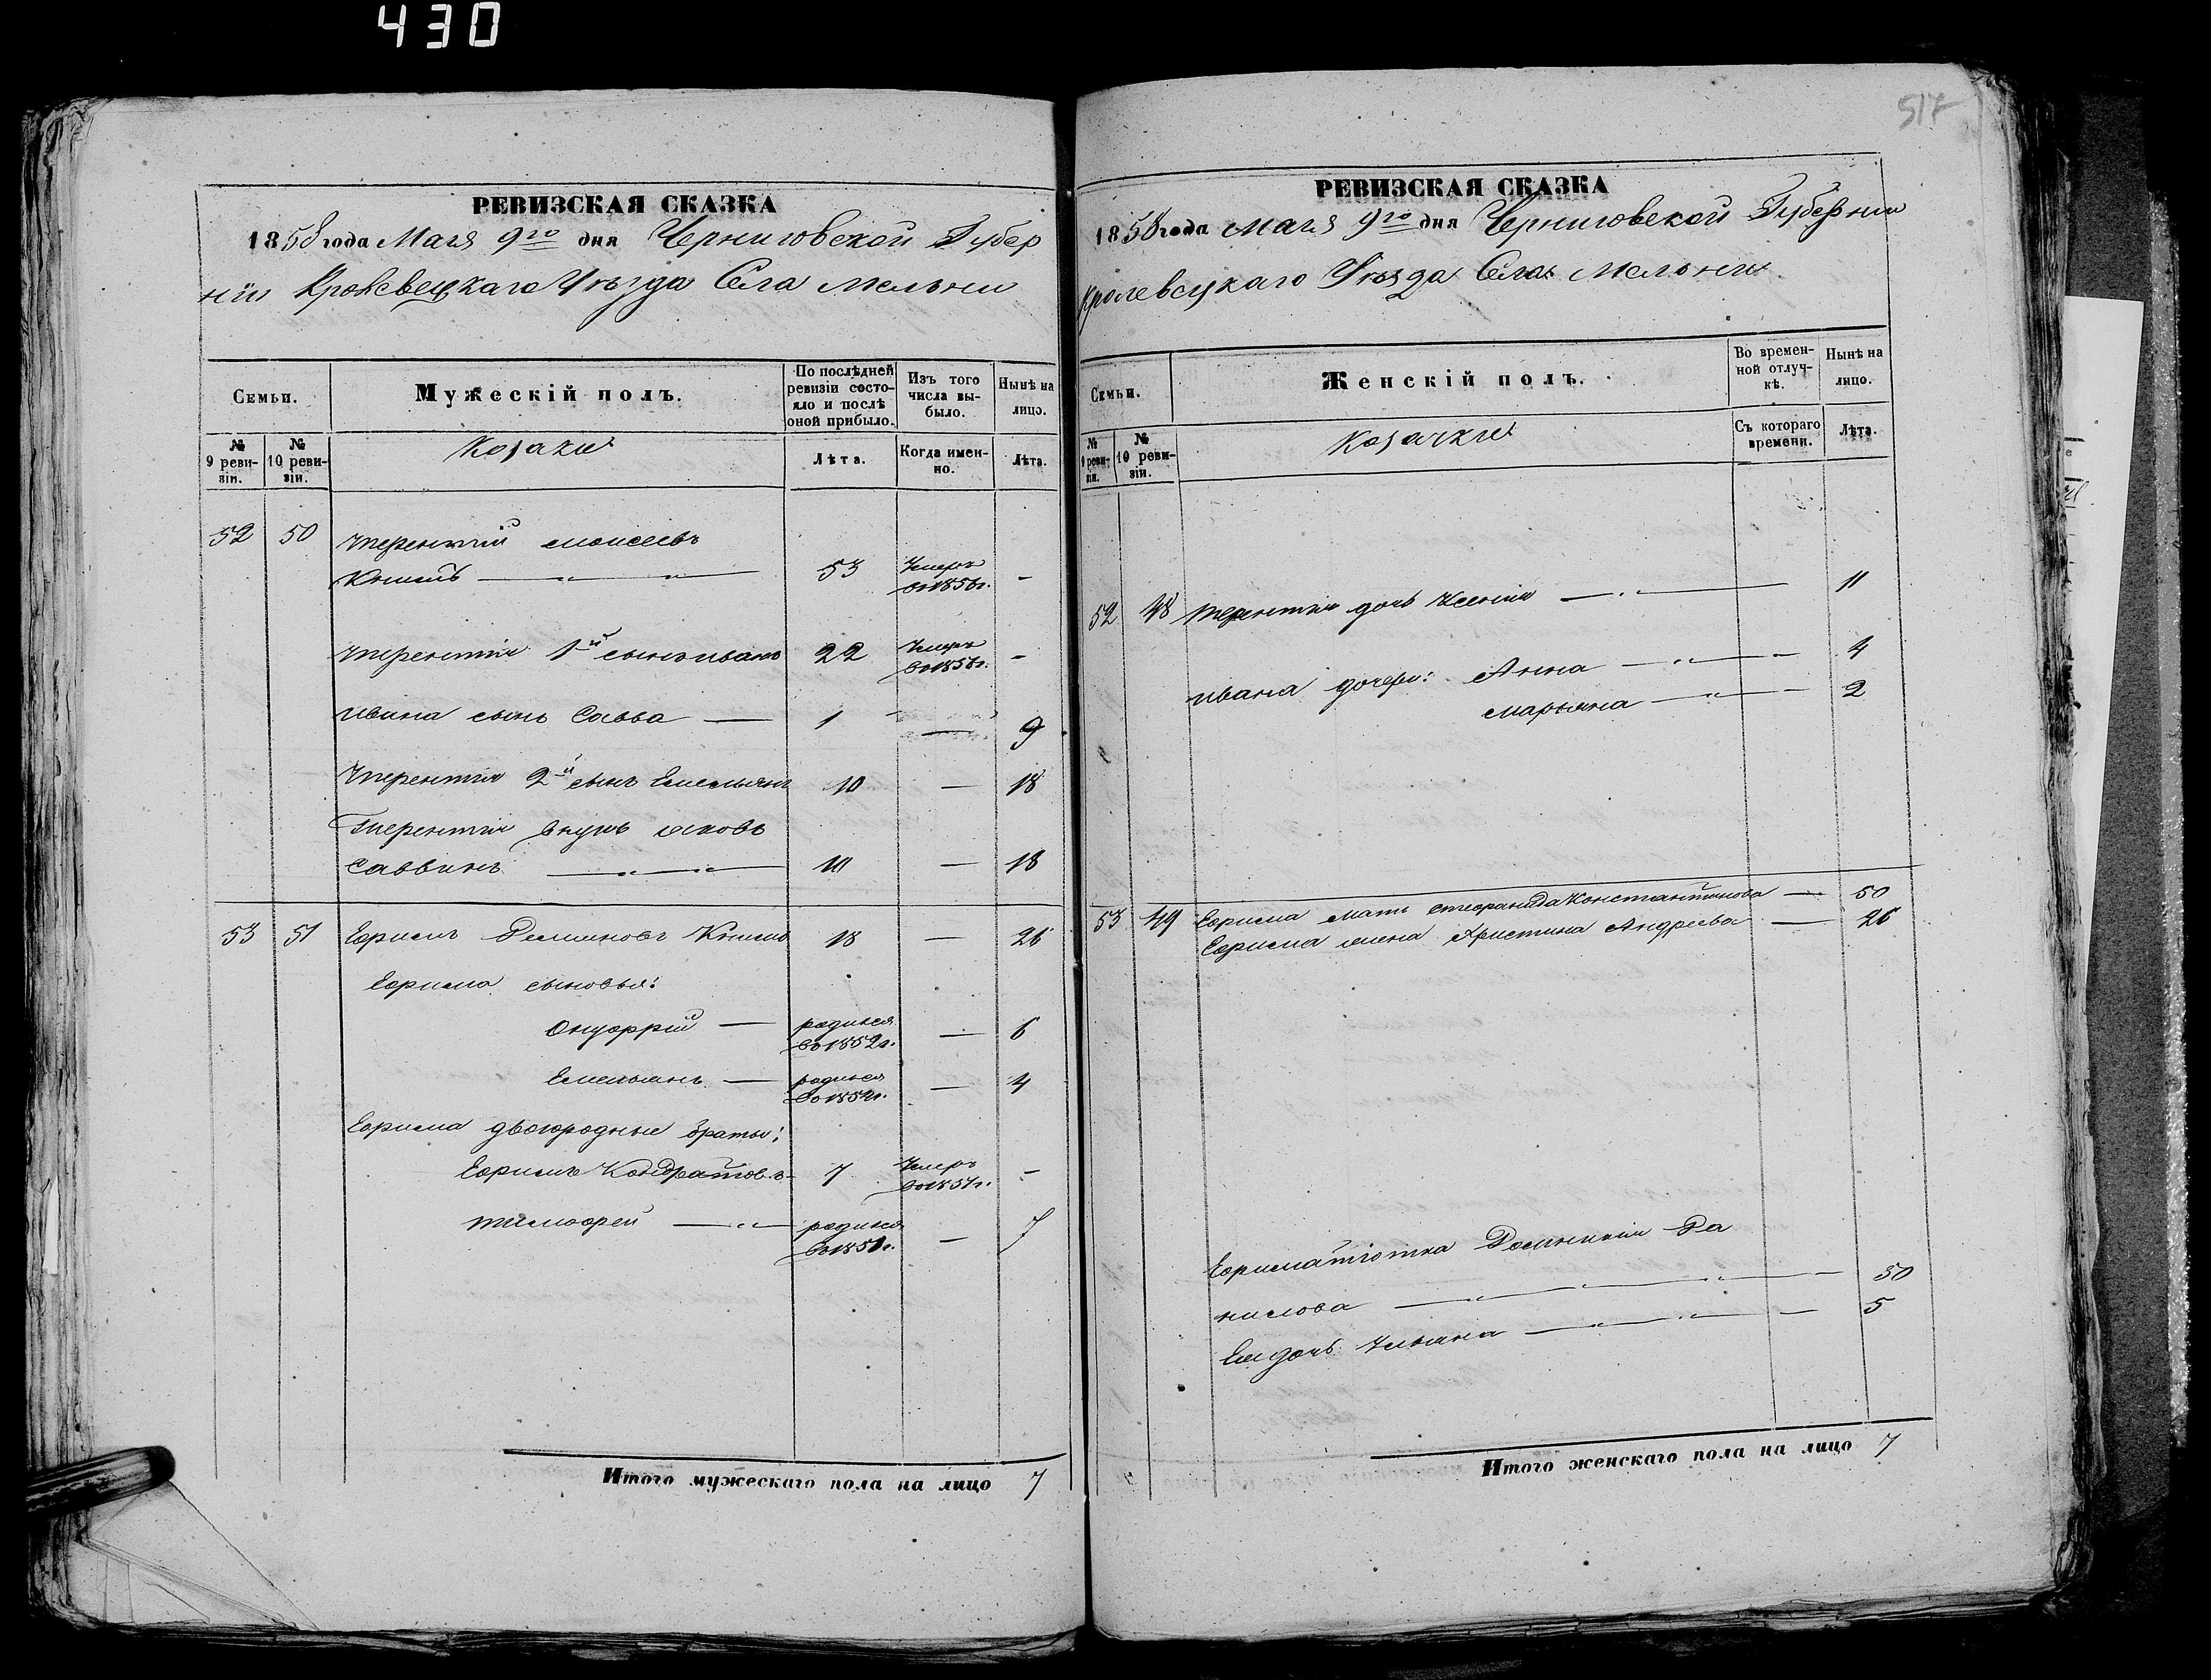 430
517
РЕВИЗСКАЯ СКАЗКА
1858 года Мая 9го дня Черниговской Губер
ніи Кролевецкаго Уѣзда Села Мельни
Семьи.
Мужескій полъ.
По послѣдней ревизіи состояло и послѣ оной прибыло.
Изъ того числа выбыло.
Нынѣ на лицо.
№ 9 ревизіи.
№ 10 ревизіи.
Козаки
Лѣта.
Когда именно.
Лѣта.
52 50 Терентій Моисеевъ
Кнышъ 53 Умеръ в 1856г. -
Терентія 1й сынъ Иванъ 22 Умеръ в 1856г. -
Ивана сынъ Савва — 1 — 9
Терентія 2й сынъ Емельянъ 10 — 18
Терентія внукъ Яковъ
Саввинъ 10 — 18
53 51 Ефимъ Демьяновъ Кнышъ 18 — 26
Ефима сыновья:
Онуфрій — родился в 1852г. — 6
Емельянъ — родился в 1854г. — 4
Ефима двоюродные братья:
Ефимъ Кондратовъ 7 Умеръ в 1851г. -
Тимофей родился в 1851г. — 7
Итого мужескаго пола на лицо 7
РЕВИЗСКАЯ СКАЗКА
1858 года Мая 9го дня Черниговской Губерніи
Кролевецкаго Уѣзда Села Мельни
Семьи.
Женскій полъ.
Во временной отлучкѣ.
Нынѣ на лицо.
№ 9 ревизіи.
№ 10 ревизіи.
Козачки
Съ котораго времени.
Лѣта.
52 48 Терентія дочь Ксенія 11
Ивана дочери: Анна 4
Марьяна 2
53 49 Ефима мать Стефанида Константинова — 50
Ефима жена Христина Андреева — 26
Ефима тіотка Доминикія Да
нилова 50
Ея дочь Ульяна 5
Итого женскаго пола на лицо 7